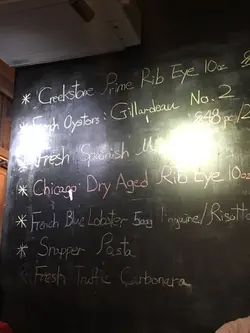 * Creekstone Prime Rib Eye 10oz
* Fresh Oysters: Gillardeau No. 2
* Fresh Spanish
* Chicago Dry Aged Rib Eye 10oz
* French Blue Lobster 500g linguine/Risotto
* Snapper Pasta
* Fresh Truffle Carbonara